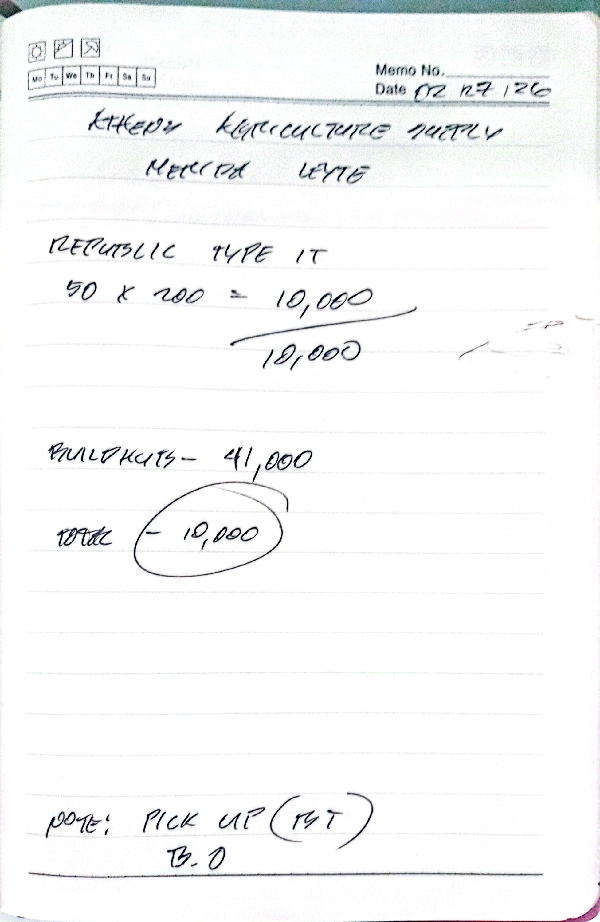 Mo Tu We Th Fr Sa Su
Memo No.
Date 02 27 / 26
AGRICULTURE SUPPLY
MERIDA LEYTE
REPUBLIC TYPE 1T
50 X 200 = 10,000
10,000
- 41,000
TOTAL - 10,000
NOTE: PICK UP (BT)
B.O